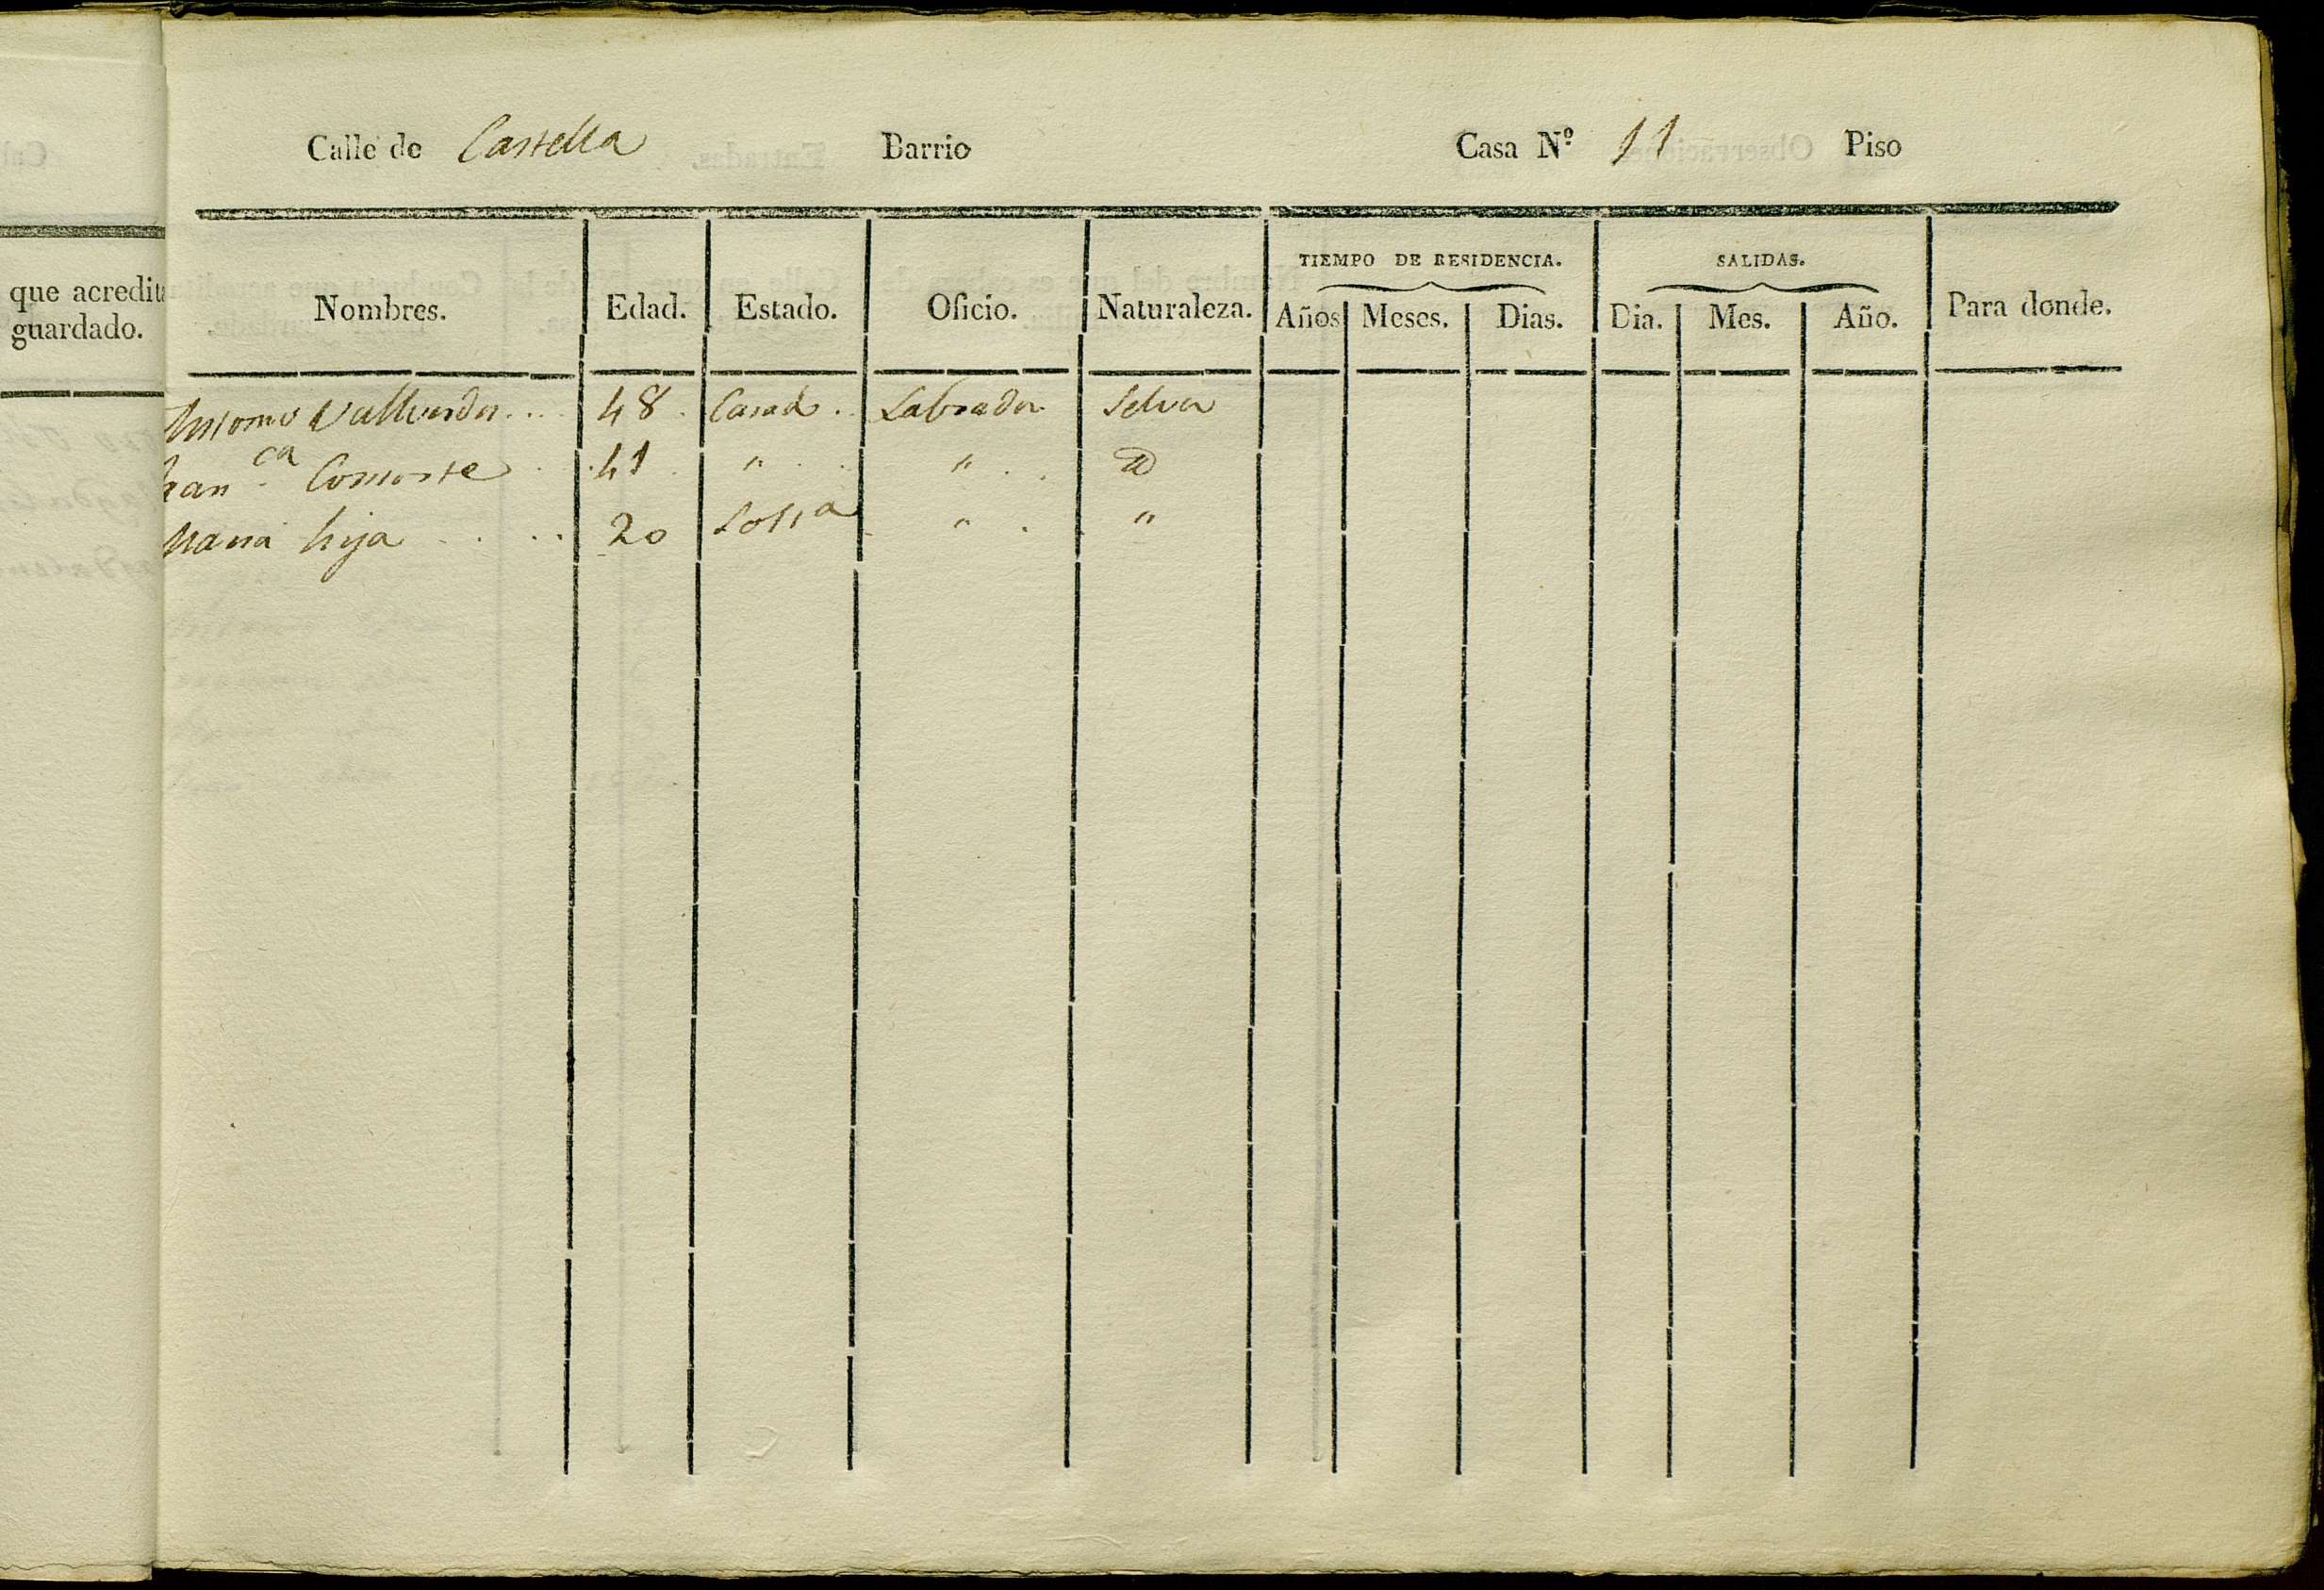 Calle de Castella Barrio Casa Nº 11 Piso
que acredita
guardado.
TIEMPO DE RESIDENCIA. SALIDAS.
Nombres. Edad. Estado. Oficio. Naturaleza. Años Meses. Dias. Dia. Mes. Año. Para donde.
Antonio Vallverdu 48 Casad. Labrador Selva
Franca 41 " " Id
Maria hija 20 Soltra " "